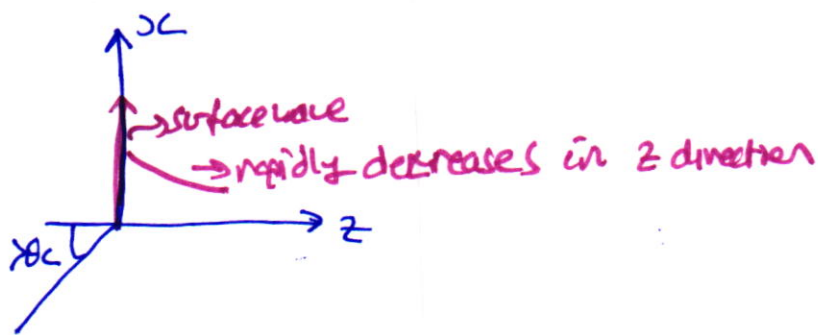 x
→surface wave
→rapidly decreases in z direction
z
>θc